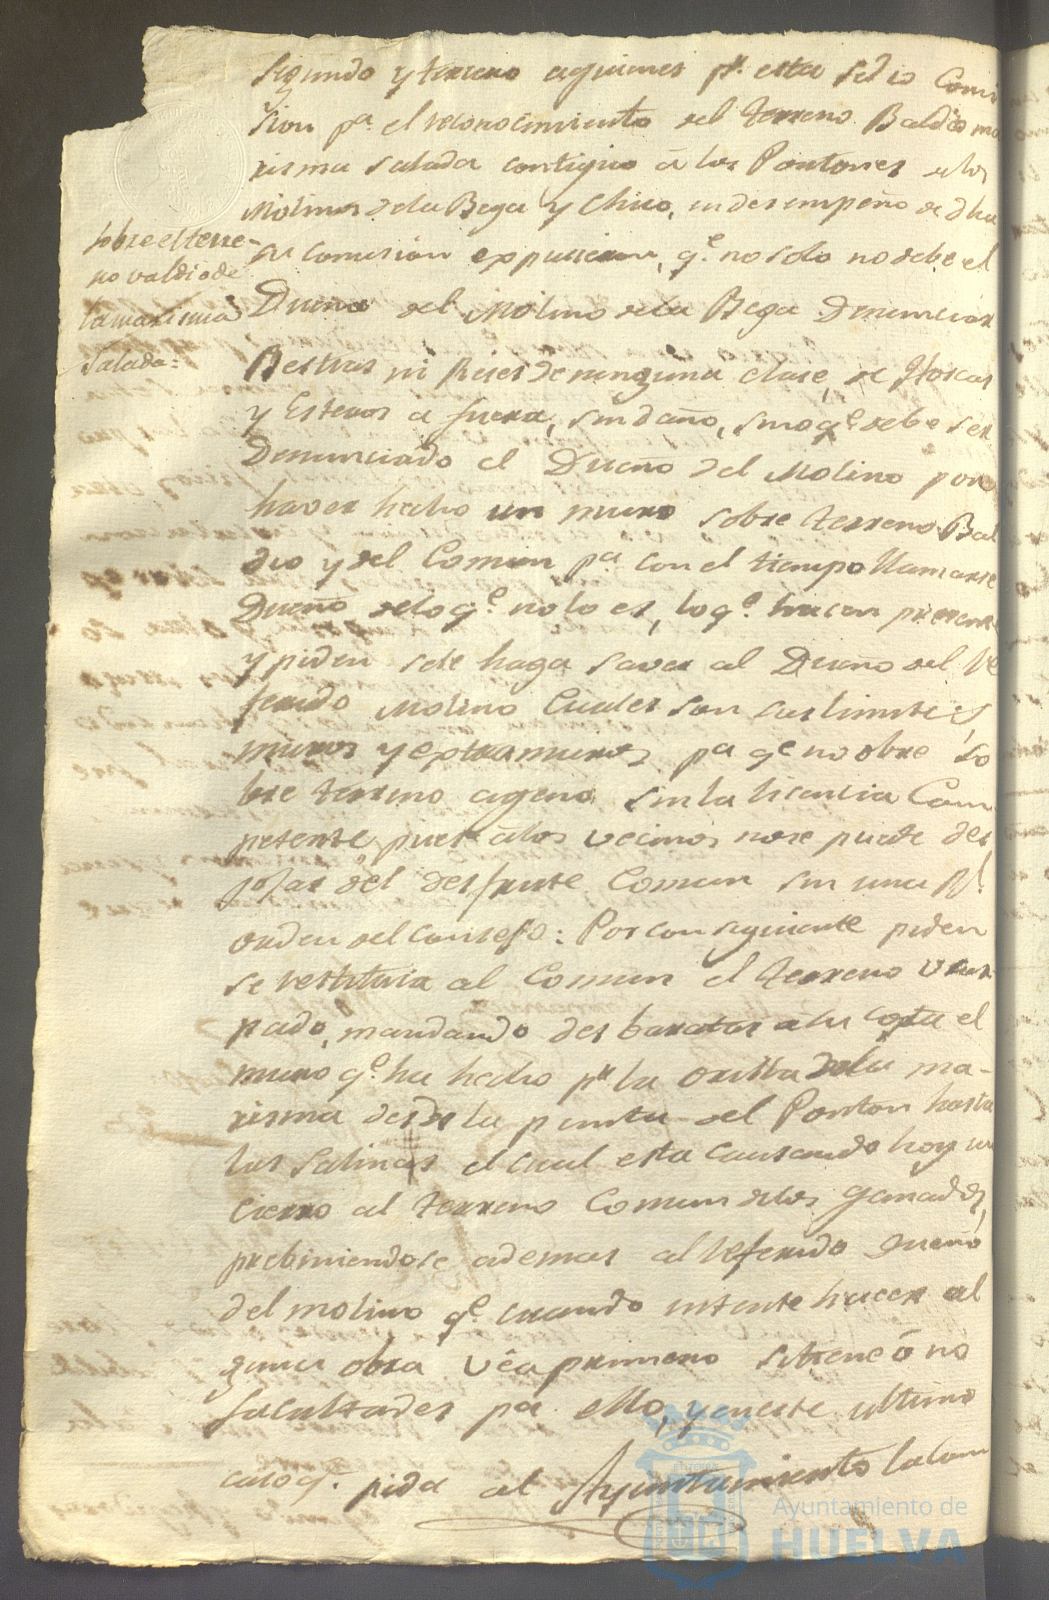 Segundo y terzero aquienes pr. esta se dio Comi
sion pa. el reconocimiento del terreno Baldio ma
risma salada contiguo â los Pontones delos
Molinos dela Bega y Chico, en desempeño de dha
su comision expusieron, qe. no solo no debe el
Dueño del Molino dela Bega Denunciar
Bestias ni Reses de ninguna clase, de
y Esteros a fuera, sin daño, sino qe. debe ser
Denunciado el Dueño del Molino por
haver hecho un muro sobre terreno Bal
dio y del Comun pa con el tiempo llamarse
Dueño delo qe. no lo es, lo qe. hacen presente
y piden se le haga saver al Dueño del Re
ferido Molino Cuales son sus limites,
muros y extramuros, pa qe no obre so
bre terreno ageno sin la licencia Com
petente, pues alos vecinos nose puede des
pojar del desfrute Comun sin una Rl.
orden del consejo: Por consiguiente piden
se restituia al Comun el terreno vsur
pado, mandando desbaratar a su costa el
muro qe. ha hecho pr la orilla dela ma-
risma desde la punta del Ponton hasta
las Salinas el cual esta causando hoy un
cierro al terreno Comun delos ganados,
prebiniendose ademas al referido Dueño
del molino qe. cuando intente hacer al
guna obra vêa primero si tiene ô no
facultades pa. ello, y eneste ultimo
caso qe. pida al Ayuntamiento la com
sobre el terre-
no valdio de
la marisma
Salada:
Ayuntamiento de
HUELVA